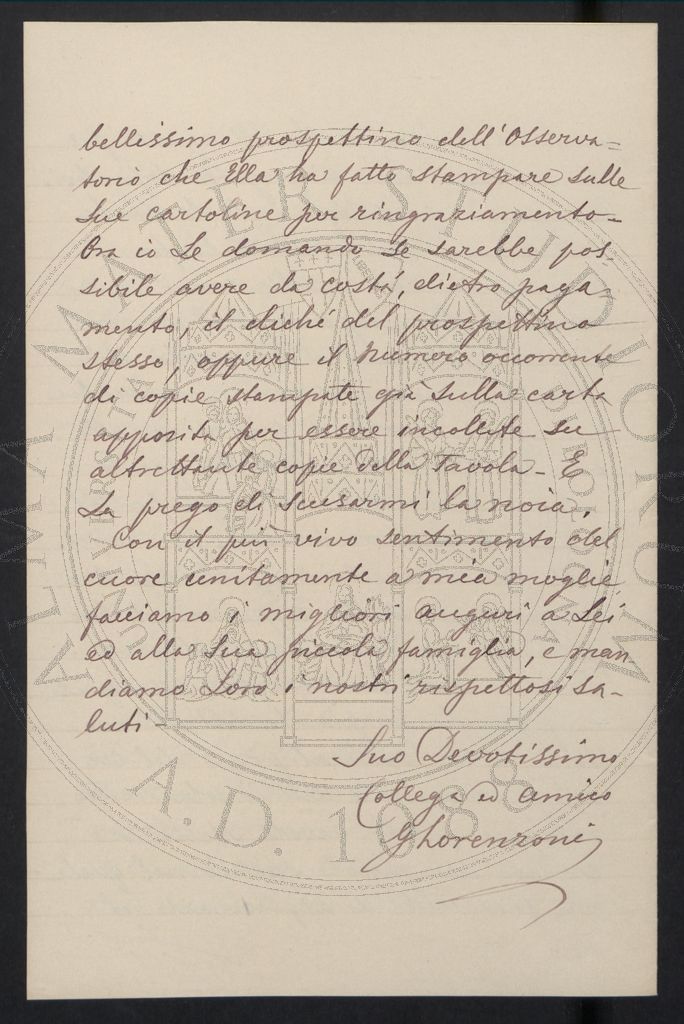 bellissimo prospettino dell'Osserva=
torio che Ella ha fatto stampare sulle
Sue cartoline per ringraziamento-
Ora io Le domando se sarebbe pos-
sibile avere da costà, dietro paga-
mento, il cliché del prospettino
stesso, oppure il numero occorrente
di copie stampate già sulla carta
apposita per essere incollate su
altrettante copie della Tavola - E
La prego di scusarmi la noia.
Con il più vivo sentimento del
cuore unitamente a mia moglie
facciamo i migliori auguri a Lei
ed alla Sua piccola famiglia, e man-
diamo Loro i nostri rispettosi sa-
luti -
Suo Devotissimo
Collega ed amico
GLorenzoni
ALMA MATER STUDIORUM
A.D. 1088